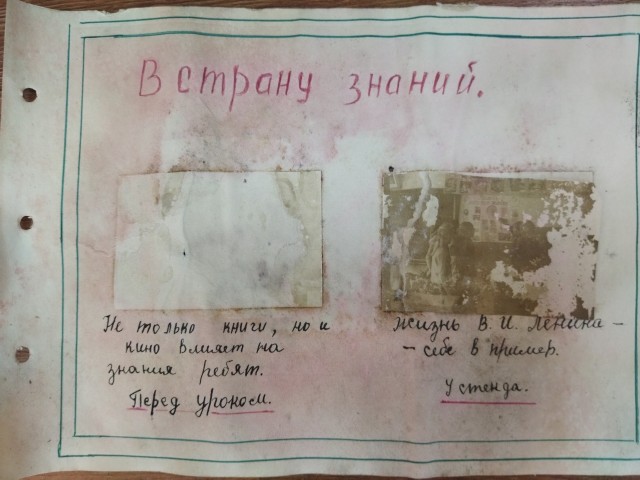 В страну знаний.
Не только книги, но и
кино влияет на
знания ребят.
Перед уроком.
Жизнь В. И. Ленина –
– себе в пример.
У стенда.